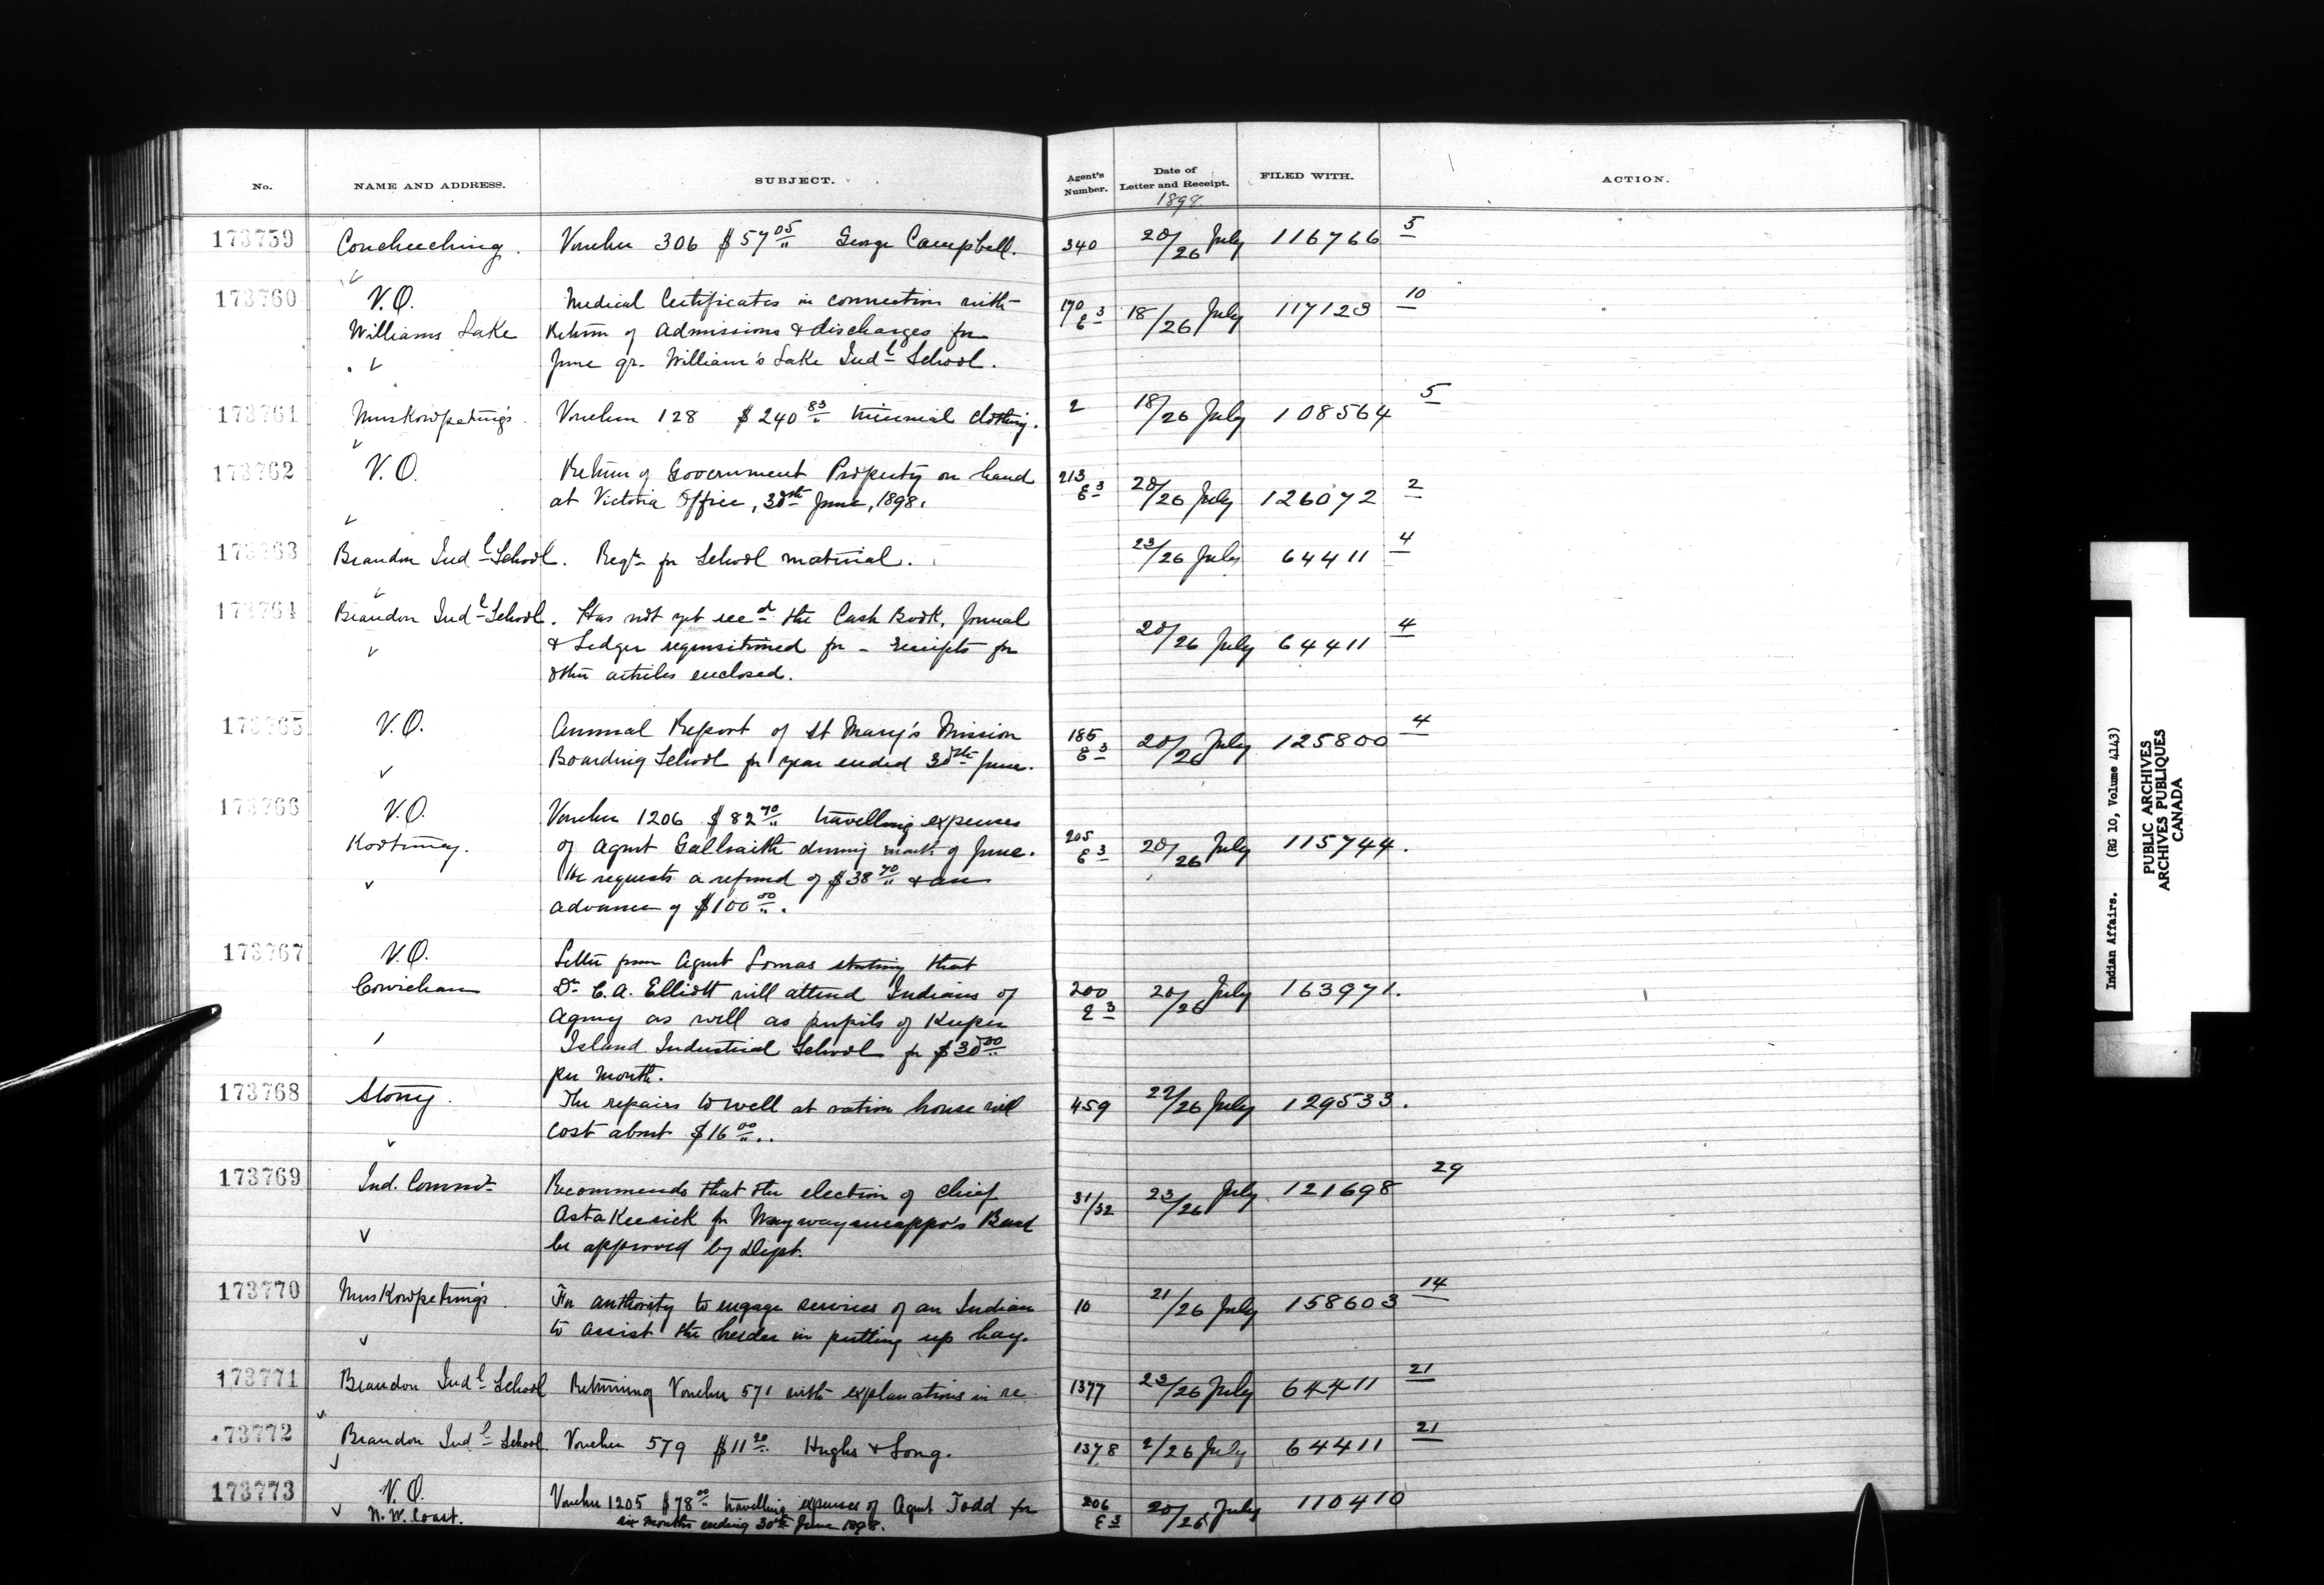 No. NAME AND ADDRESS. SUBJECT. Agent's Number. Date of Letter and Receipt. FILED WITH. ACTION.
1898
173759 Couchiching. Voucher 306 $57 05/" George Campbell. 340 20/26 July 116766 5
173760 V.O. Medical Certificates in connection with 190 E 3 18/26 July 117123 10
Williams Lake Return of admissions & discharges for
June qr. William's Lake Indl School.
173761 Muskowpetung's Voucher 128 $240 83/" triennial clothing. 2 18/26 July 108564 5
173762 V.O. Return of Government Property on hand 213 E 3 20/26 July 126072 2
at Victoria Office, 30th June, 1898.
173763 Brandon Indl School. Reqn for School material. 23/26 July 64411 4
173764 Brandon Indl School. Has not yet recd the Cash Book, Journal 20/26 July 64411 4
& Ledger requisitioned for - receipts for
other articles enclosed.
173765 V.O. Annual Report of St Mary's Mission 185 E 3 20/26 July 125800 4
Boarding School for year ended 30th June.
173766 V.O. Voucher 1206 $82 70/" travelling expenses
Kootenay. of Agent Galbraith during month of June. 205 E 3 20/26 July 115744.
He requests a refund of $38 70/" & an
advance of $100 00/".
173767 V.O. Letter from Agent Lomas stating that
Cowichan Dr C.A. Elliott will attend Indians of 200 E 3 20/26 July 163971.
Agency as well as pupils of Kuper
Island Industrial School for $30 00/"
per month.
173768 Stony. The repairs to well at ration house will 459 22/26 July 129533.
cost about $16 00/"..
173769 Ind. Commr Recommends that the election of chief 31/32 23/26 July 121698 29
Astakeesick for Waywayseecappo's Band
be approved by Dept.
173770 Muskowpetung's. For authority to engage services of an Indian 10 21/26 July 158603 14
to assist the herder in putting up hay.
173771 Brandon Indl School Returning Voucher 571 with explanations in re 1377 23/26 July 64411 21
173772 Brandon Indl School Voucher 579 $11 20/" Hughes & Long. 1378 2/26 July 64411 21
173773 V.O. Voucher 1205 $78 00/" travelling expenses of Agent Todd for 206 E 3 20/26 July 110410
N.W. Coast. six months ending 30th June 1898.
Indian Affairs. (RG 10, Volume 4143)
PUBLIC ARCHIVES
ARCHIVES PUBLIQUES
CANADA